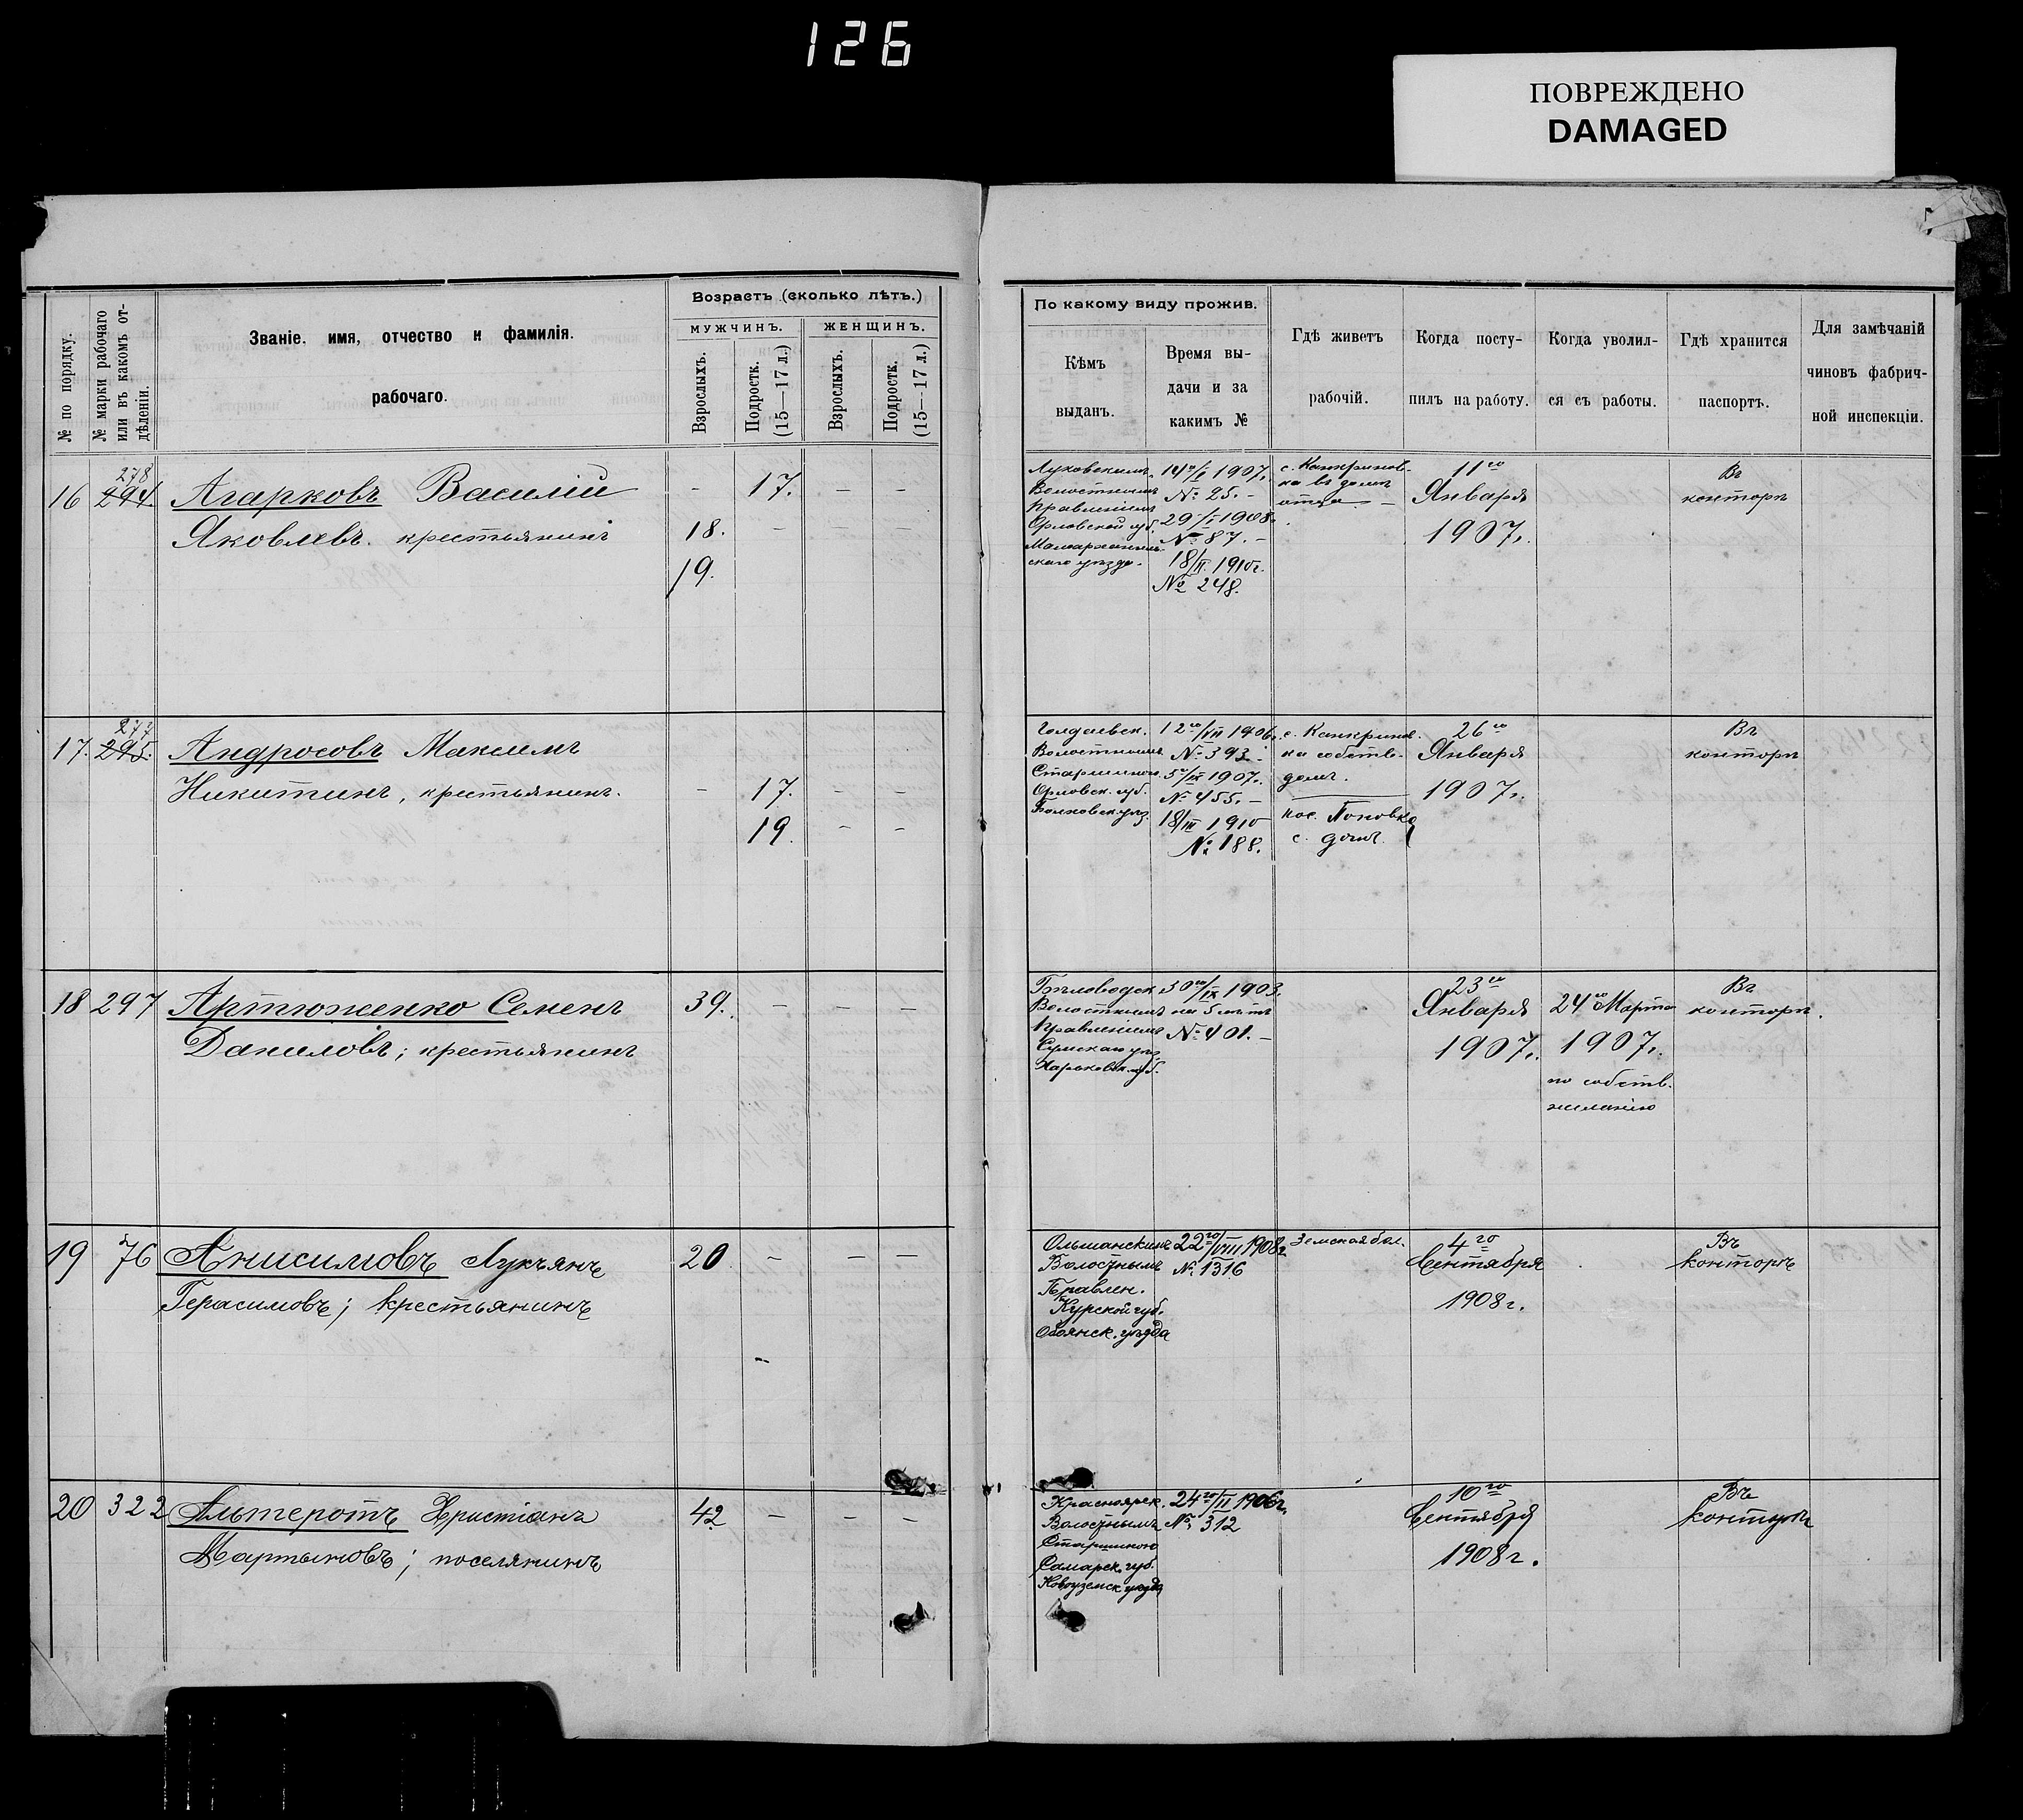 126
ПОВРЕЖДЕНО
DAMAGED
№ по порядку.
№ марки рабочаго
или въ какомъ от-
дѣленіи.
Званіе, имя, отчество и фамилія.
рабочаго.
Возрастъ (сколько лѣтъ.)
МУЖЧИНЪ.
ЖЕНЩИНЪ.
Взрослыхъ.
Подростк.
(15—17 л.)
Взрослыхъ.
Подростк.
(15—17 л.)
По какому виду прожив.
Кѣмъ
выданъ.
Время вы-
дачи и за
какимъ №
Гдѣ живетъ
рабочій.
Когда посту-
пилъ на работу.
Когда уволил-
ся съ работы.
Гдѣ хранится
паспортъ.
Для замѣчаній
чиновъ фабрич-
ной инспекціи.
278
16 294. Агарковъ Василій
Яковлевъ. крестьянинъ
- 17. - -
18. - - -
19.
Волостнымъ
правленіемъ
Орловской губ.
Малоархангель-
скаго уѣзда.
14го/I 1907г.
№ 25. -
29/I 1908г.
№ 87. -
18/II 1910г.
№ 248.
с. Канкринов-
ка въ домѣ
отца -
11го
Января
1907г.
Въ
конторѣ
277
17. 295. Андросовъ Максимъ
Никитинъ, крестьянинъ.
- 17. - -
19. - -
Волостнымъ
Старшиною
Орловск. губ.
Болховск. уѣз.
12го/VII 1906г.
№ 393.
5го/IX 1907г.
№ 455. -
18/III 1910
№ 188.
с. Канкринов-
ка собств.
домъ.
пос. Поповка
с. домъ.
26го
Января
1907г.
Въ
конторѣ
18 297 Артюженко Семенъ
Даниловъ; крестьянинъ
39. - - -
Бѣловодск.
Волостнымъ
правленіемъ
Сумскаго уѣз.
Харьковск. губ.
30го/IX 1903.
на 5 лѣтъ
№ 401. -
23го
Января
1907г.
24го Марта
1907г.
по собств.
желанію
Въ
конторѣ.
19 76 Анисимовъ Лукъянъ
Герасимовъ; крестьянинъ
20 - - -
Ольшанскимъ
Волостнымъ
Правлен.
Курской губ.
Обоянск. уѣзда
22го/VIII 1908г.
№ 1316
Земская бол.
4го
Сентября
1908г.
Въ
конторѣ
20 322 Альтеротъ Христіанъ
Мартыновъ; поселянинъ
42 - - -
Красноярск.
Волостнымъ
Старшиною
Самарск. губ.
Новоузенск. уѣзда
24го/II 1906г.
№ 312
10го
Сентября
1908г.
Въ
конторѣ